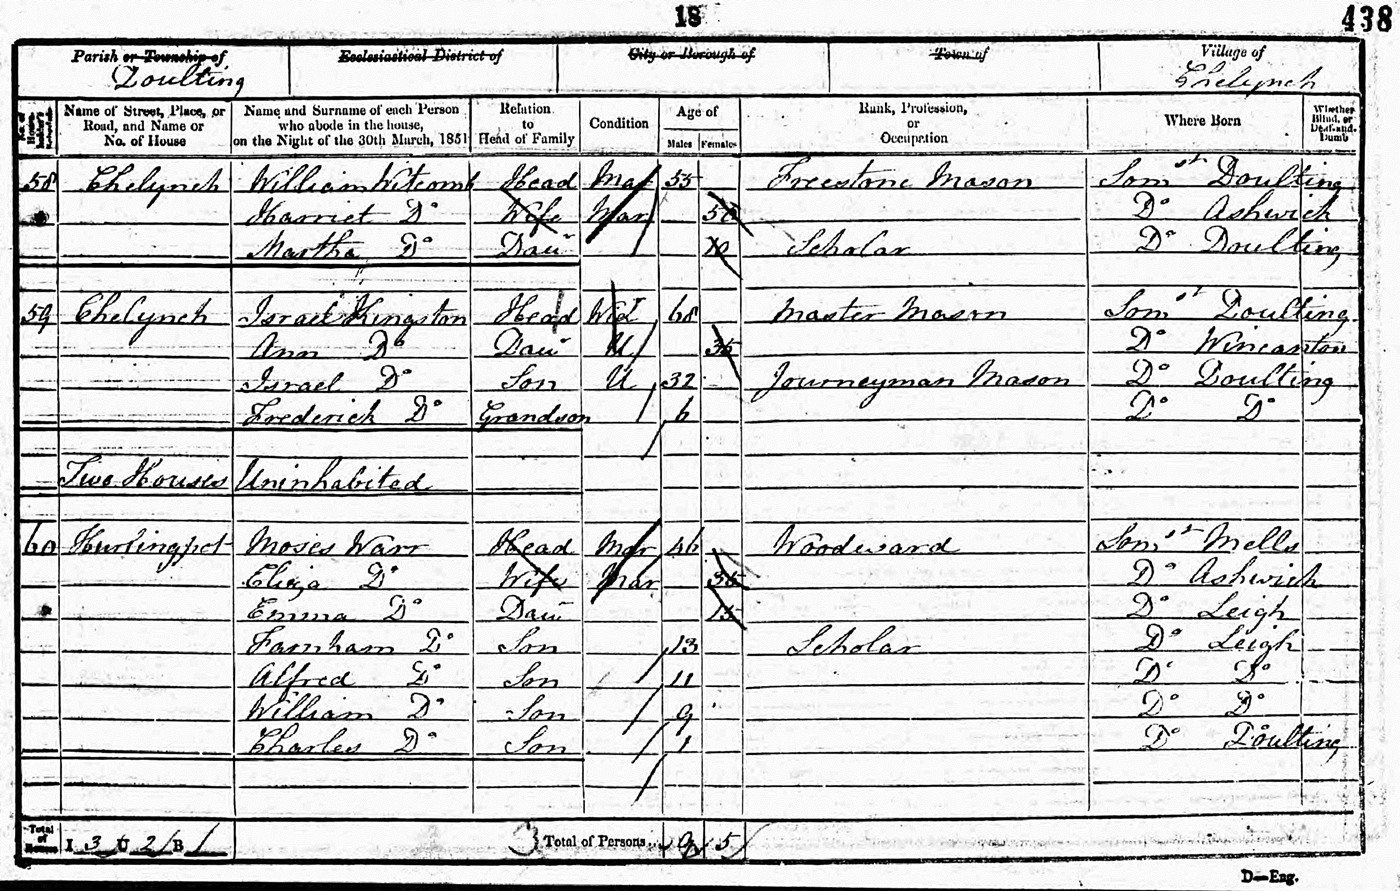 18
438
Parish or Township of Ecclesiastical District of City or Borough of Town of Village of
Doulting Chelynch
No. of House-holder's Schedule Name of Street, Place, or Road, and Name or No. of House Name and Surname of each Person who abode in the house, on the Night of the 30th March, 1851 Relation to Head of Family Condition Age of Males Females Rank, Profession, or Occupation Where Born Whether Blind, or Deaf-and-Dumb
58 Chelynch William Witcomb Head Mar 55 Freestone Mason Somst Doulting
Harriet Do Wife Mar Do Ashwick
Martha Do Daur Scholar Do Doulting
59 Chelynch Israel Kingston Head Widr 68 Master Mason Somst Doulting
Ann Do Daur U 35 Do Wincanton
Israel Do Son U 32 Journeyman Mason Do Doulting
Frederick Do Grandson 6 Do Do
Two Houses Uninhabited
60 Hurlingpot Moses Warr Head Mar 46 Woodward Somst Mells
Eliza Do Wife Mar 36 Do Ashwick
Emma Do Daur 15 Do Leigh
Farnham Do Son 13 Scholar Do Leigh
Alfred Do Son 11 Do Do
William Do Son 9 Do Do
Charles Do Son 1 Do Doulting
Total of Houses I 3 U 2 B 1 Total of Persons... 9 5
D—Eng.